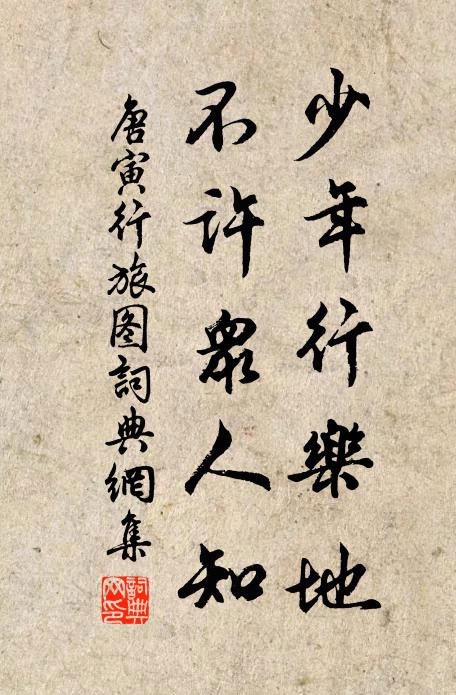 少年行樂地
不許衆人知
唐寅行旅图詞典網集
詞典网印